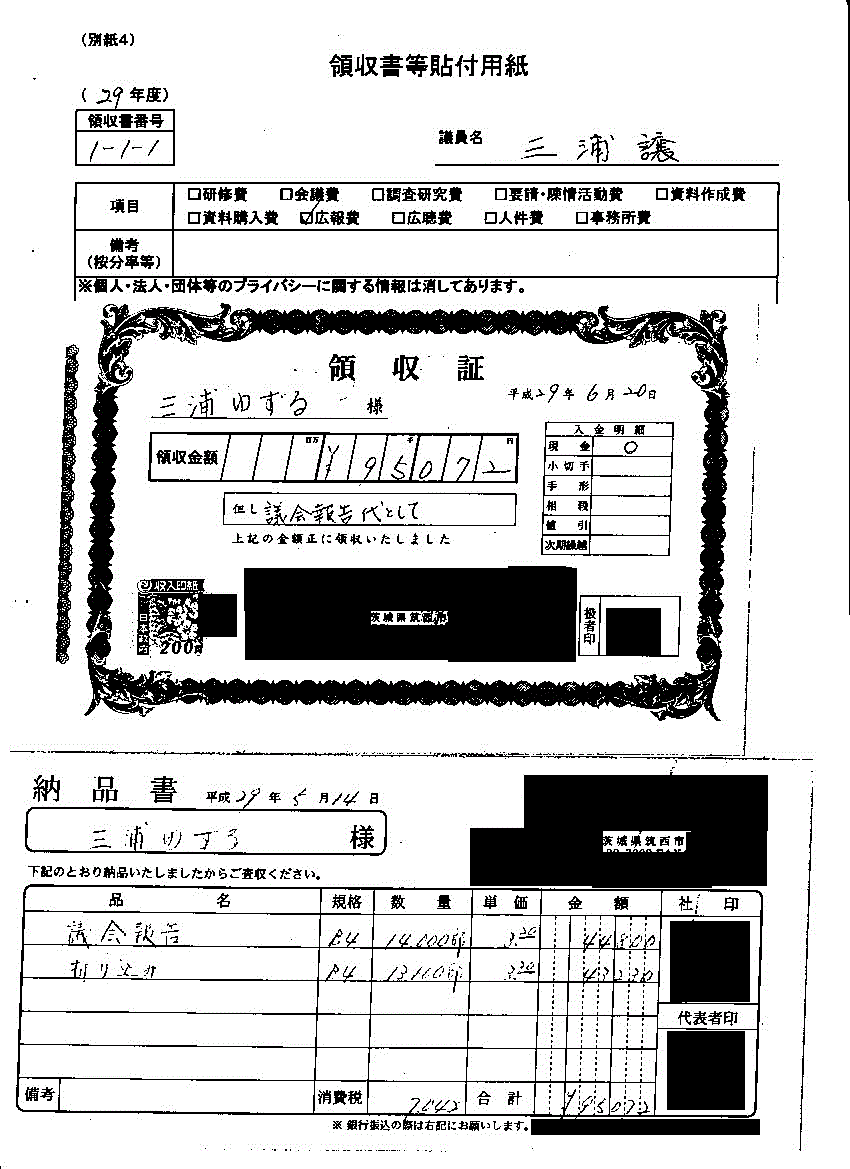 (別紙4)
領収書等貼付用紙
(29年度)
領収書番号
1-1-1
議員名 三浦 譲
項目
□研修費 □会議費 □調査研究費 □要請・陳情活動費 □資料作成費
□資料購入費 ☑広報費 □広聴費 □人件費 □事務所費
備考
(按分率等)
※個人・法人・団体等のプライバシーに関する情報は消してあります。
領収証
平成29年6月20日
三浦ゆずる 様
領収金額 百万 千 円 ¥95072
但し 議会報告代として
上記の金額正に領収いたしました
入金明細
現金 ○
小切手
手形
相殺
値引
次期繰越
収入印紙
200円
茨城県筑西市
扱者印
納品書 平成29年5月14日
三浦ゆずる 様
茨城県筑西市
下記のとおり納品いたしましたからご査収ください。
品名 規格 数量 単価 金額 社印
議会報告 B4 14,000部 3.20 44800
折り込み B4 13,100部 3.30 43230
代表者印
備考 消費税 7042 合計 ¥95072
※ 銀行振込の際は右記にお願いします。